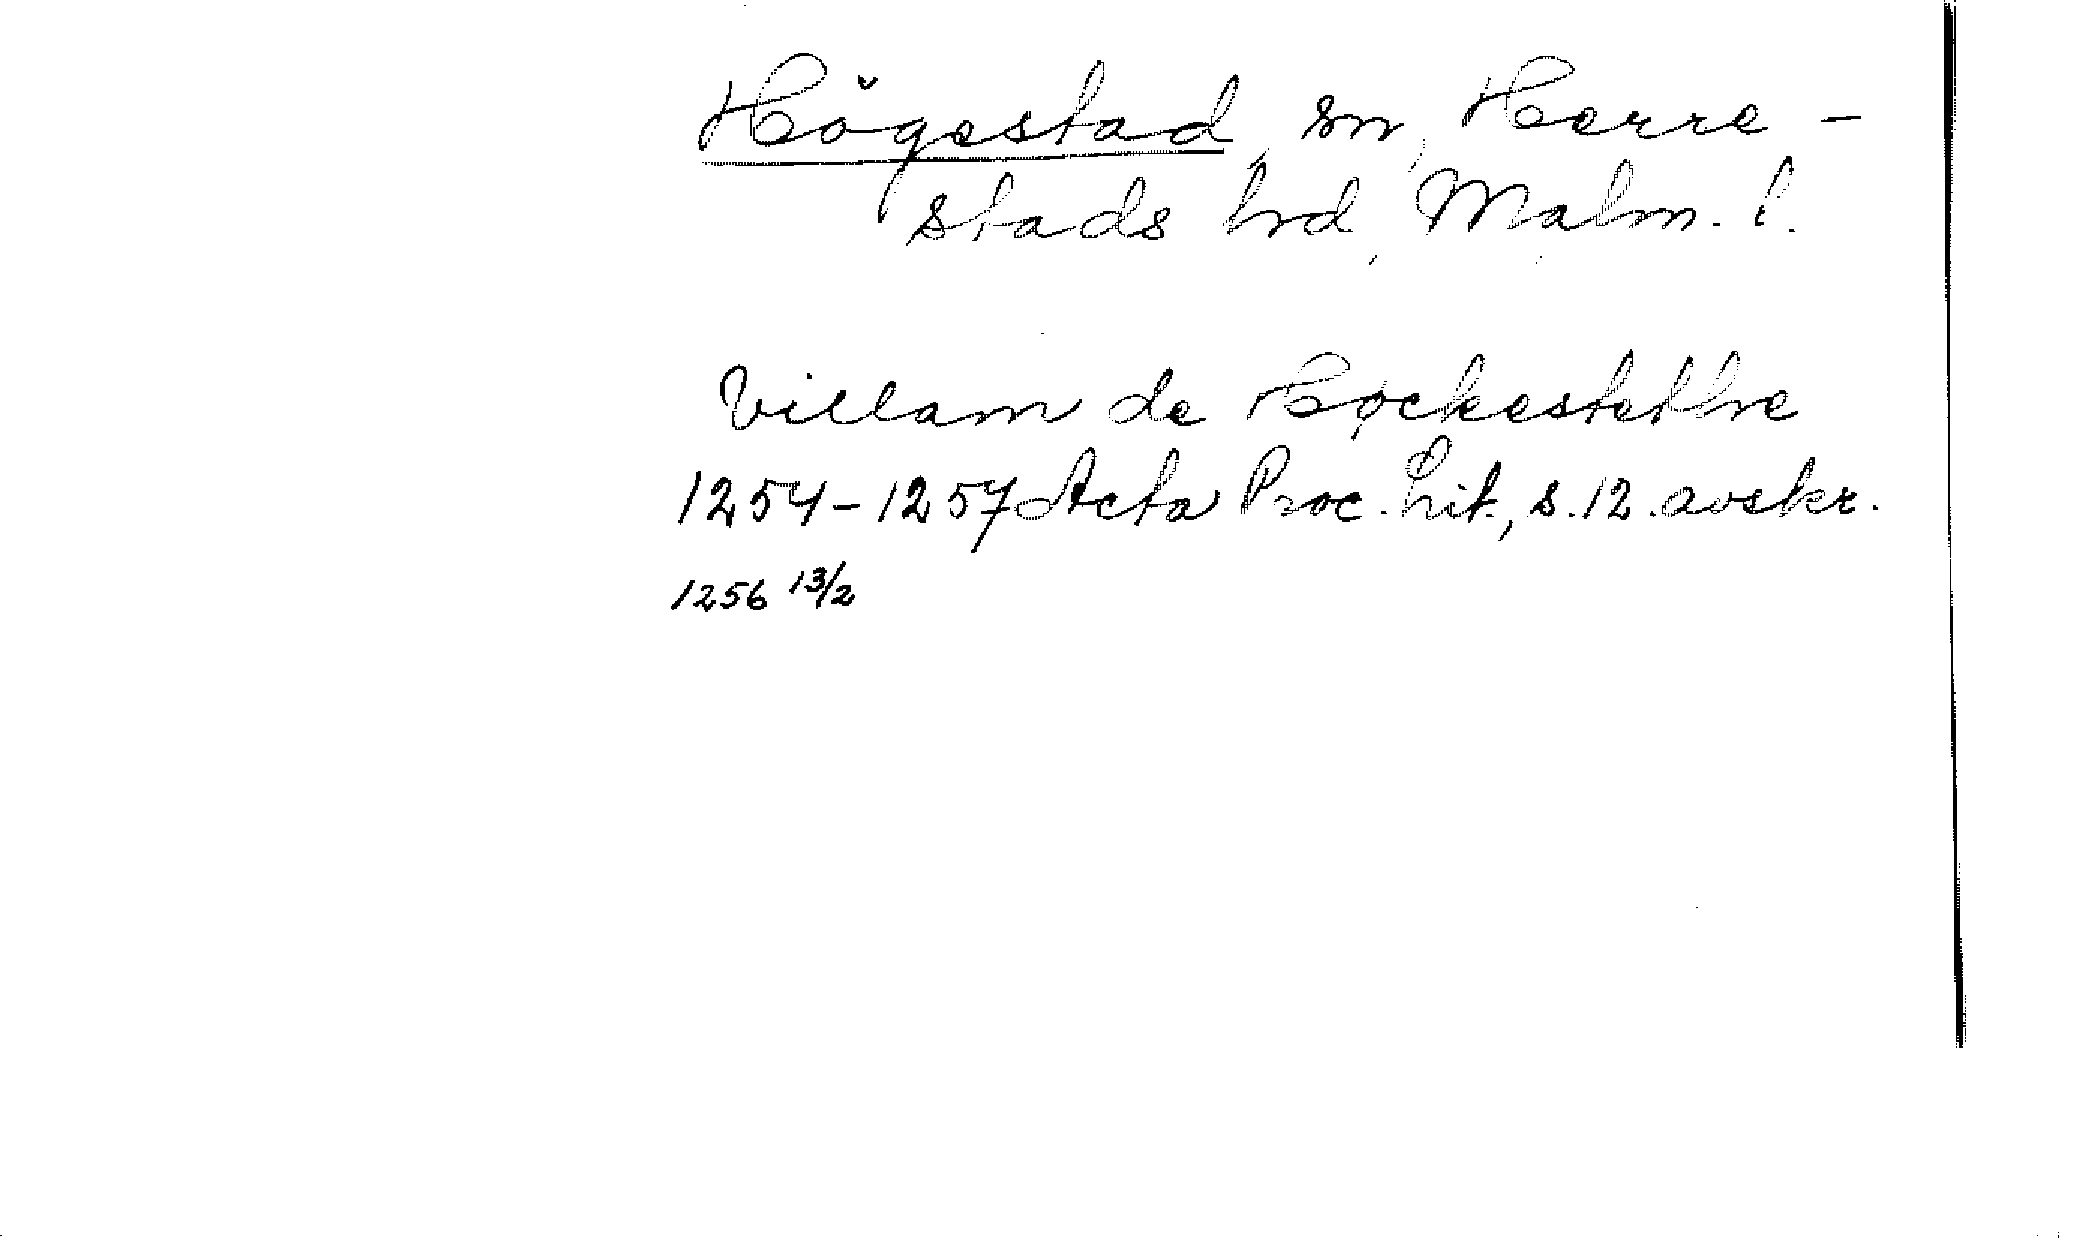 Högestad, sn, Herre-
stads hrd, Malm. l.
Villam de Høckestethe
1254-1257 Acta Proc. Lit., s. 12. avskr.
1256 13/2